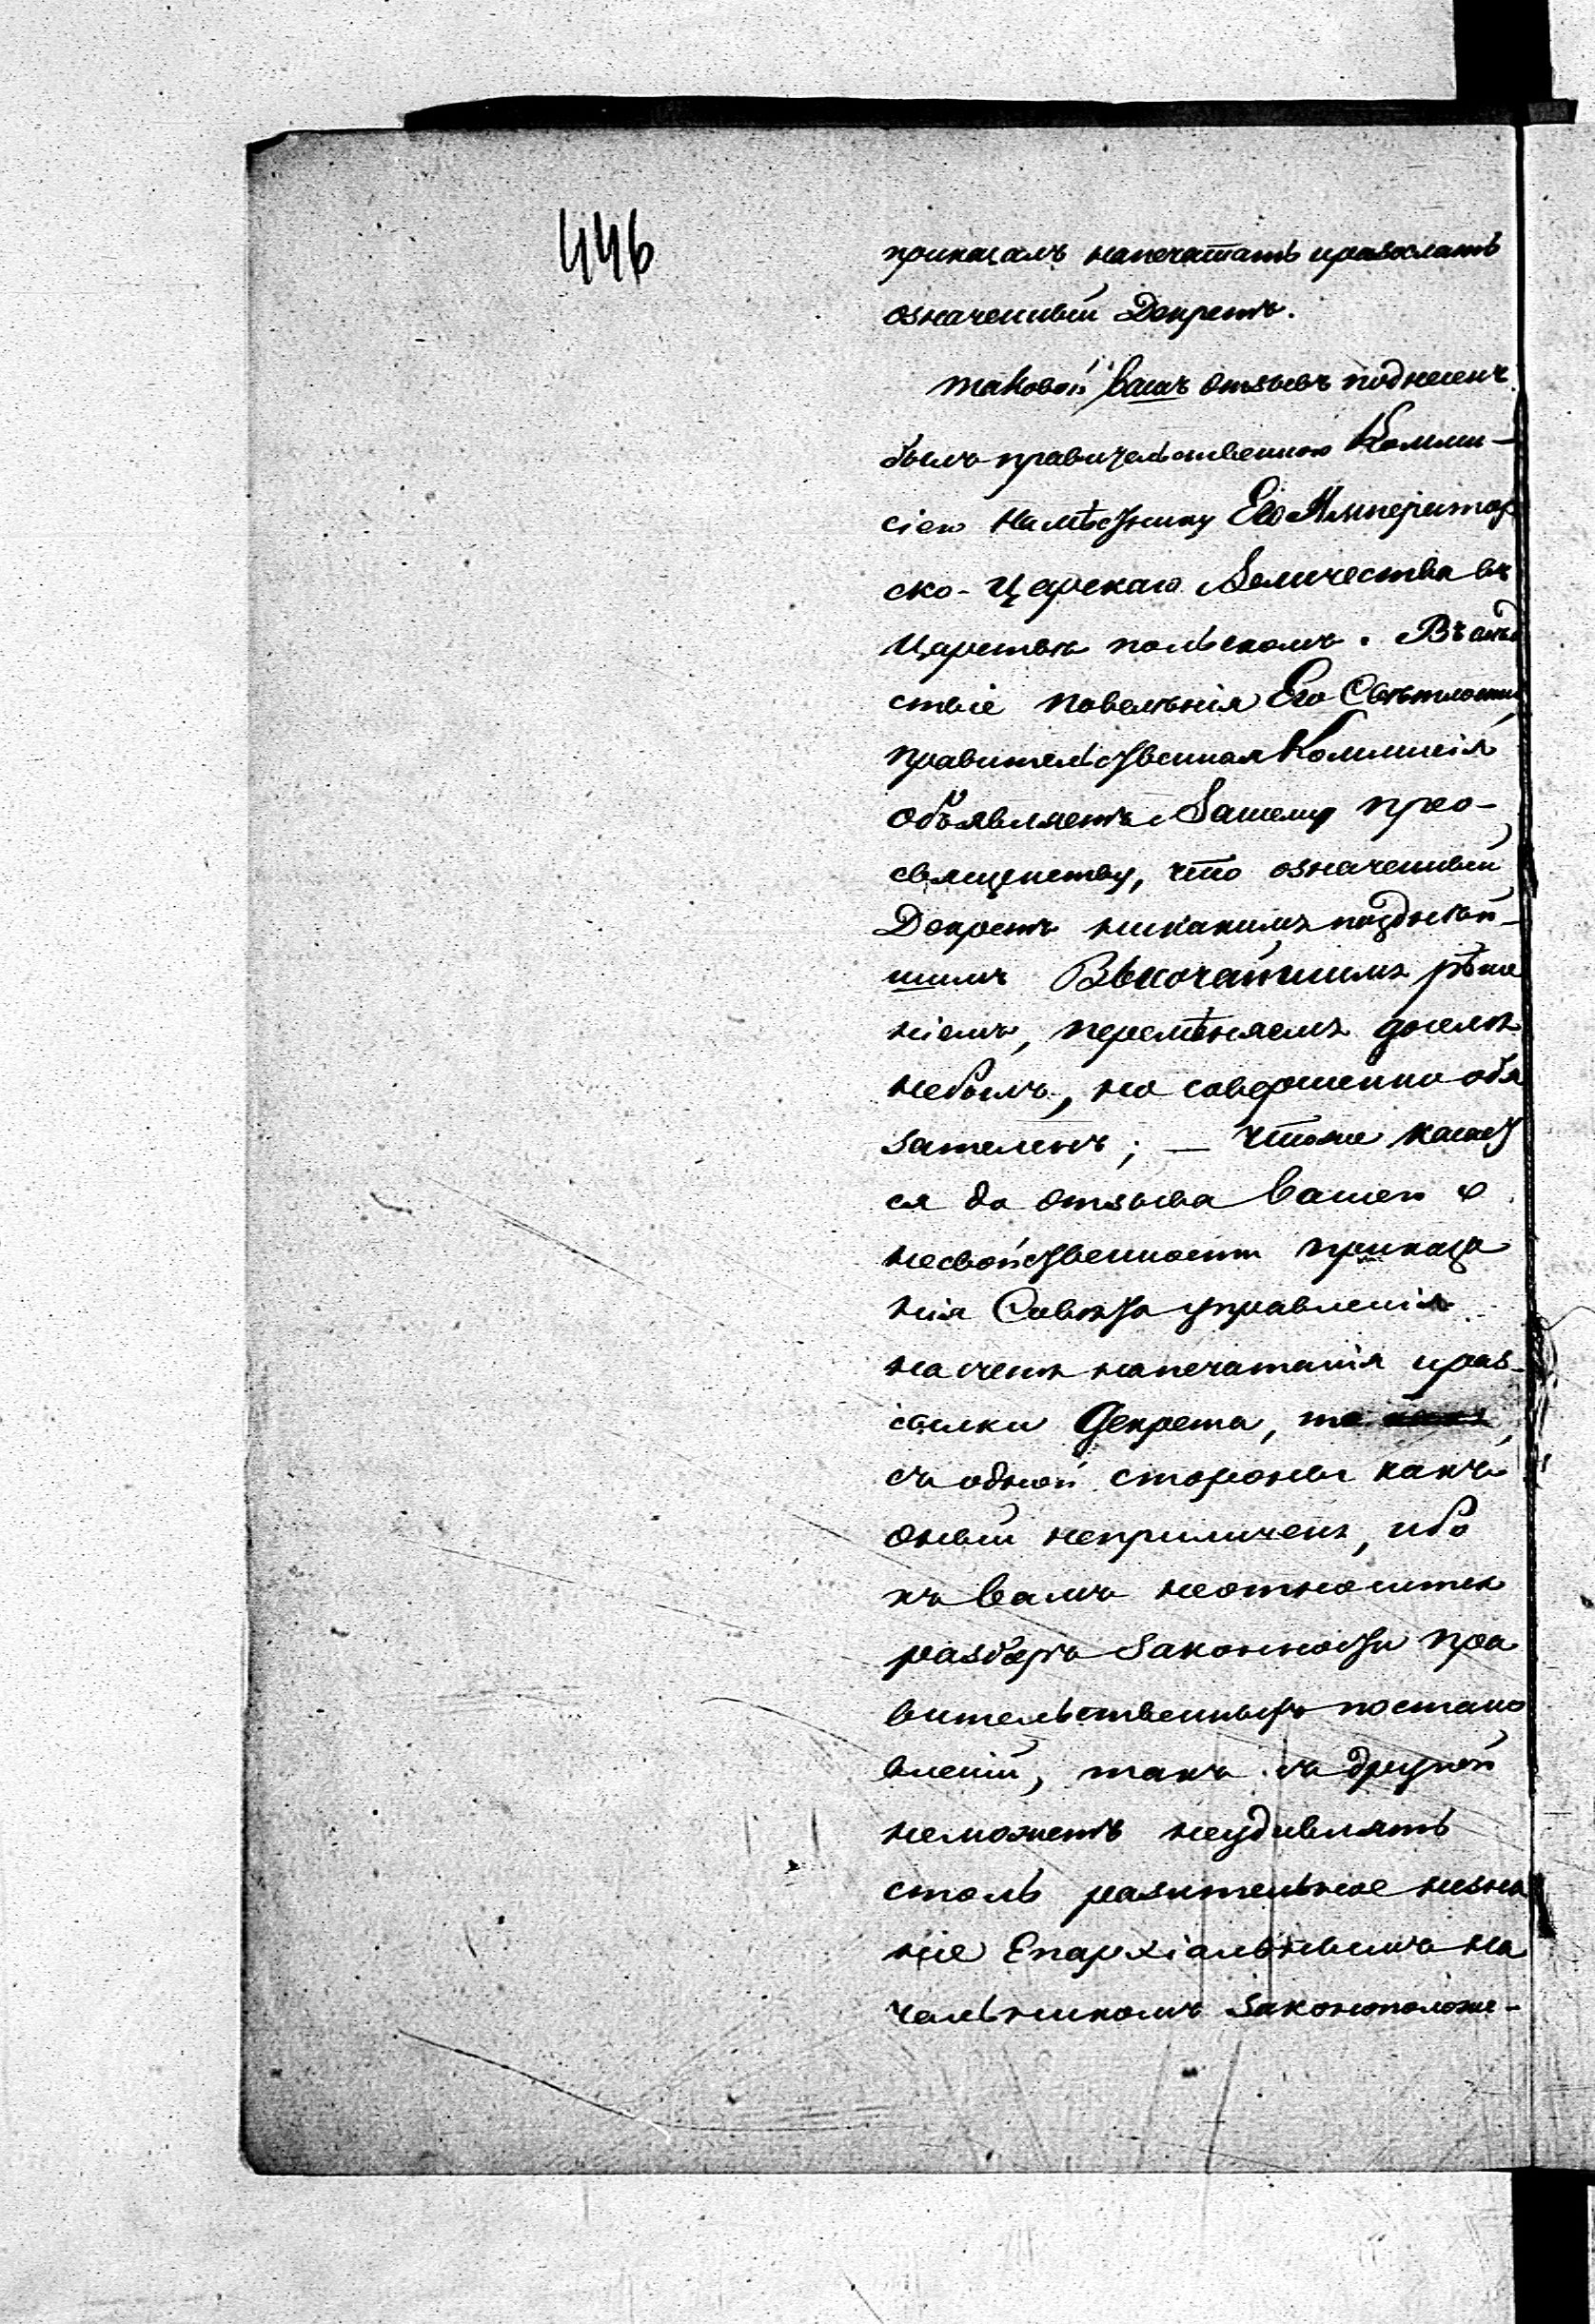 446
приказалъ напечатать иразослать
означенный Декретъ.
таковой вашъ отзывъ поднесенъ
былъ правительственною Комми-
сіею намѣстнику Его Император
ско-Царскаго Величества въ
Царствѣ польскомъ. Въ слѣд
ствіе повелѣнія Его Свѣтлости
правительственная Коммисія
объявляетъ Вашему прео-
священству, что означенный
Декретъ никакимъ позднѣй-
шимъ Высочайшимъ рѣше
ніемъ, перемѣняемъ доселѣ
небылъ, но совершенно обя
зателенъ; — чтоже касает
ся до отзыва вашего о
несвойственности приказа
нія Совѣта управленія
насчетъ напечатанія ираз-
сылки Декрета, то
съ одной стороны какъ
оный неприличенъ, ибо
къ вамъ неотносится
разборъ законности пра
вительственныхъ постано
вленій, такъ съ другой
неможетъ неудивлять
столь разительное незна
ніе Епархіальнымъ на
чальникомъ законоположе-